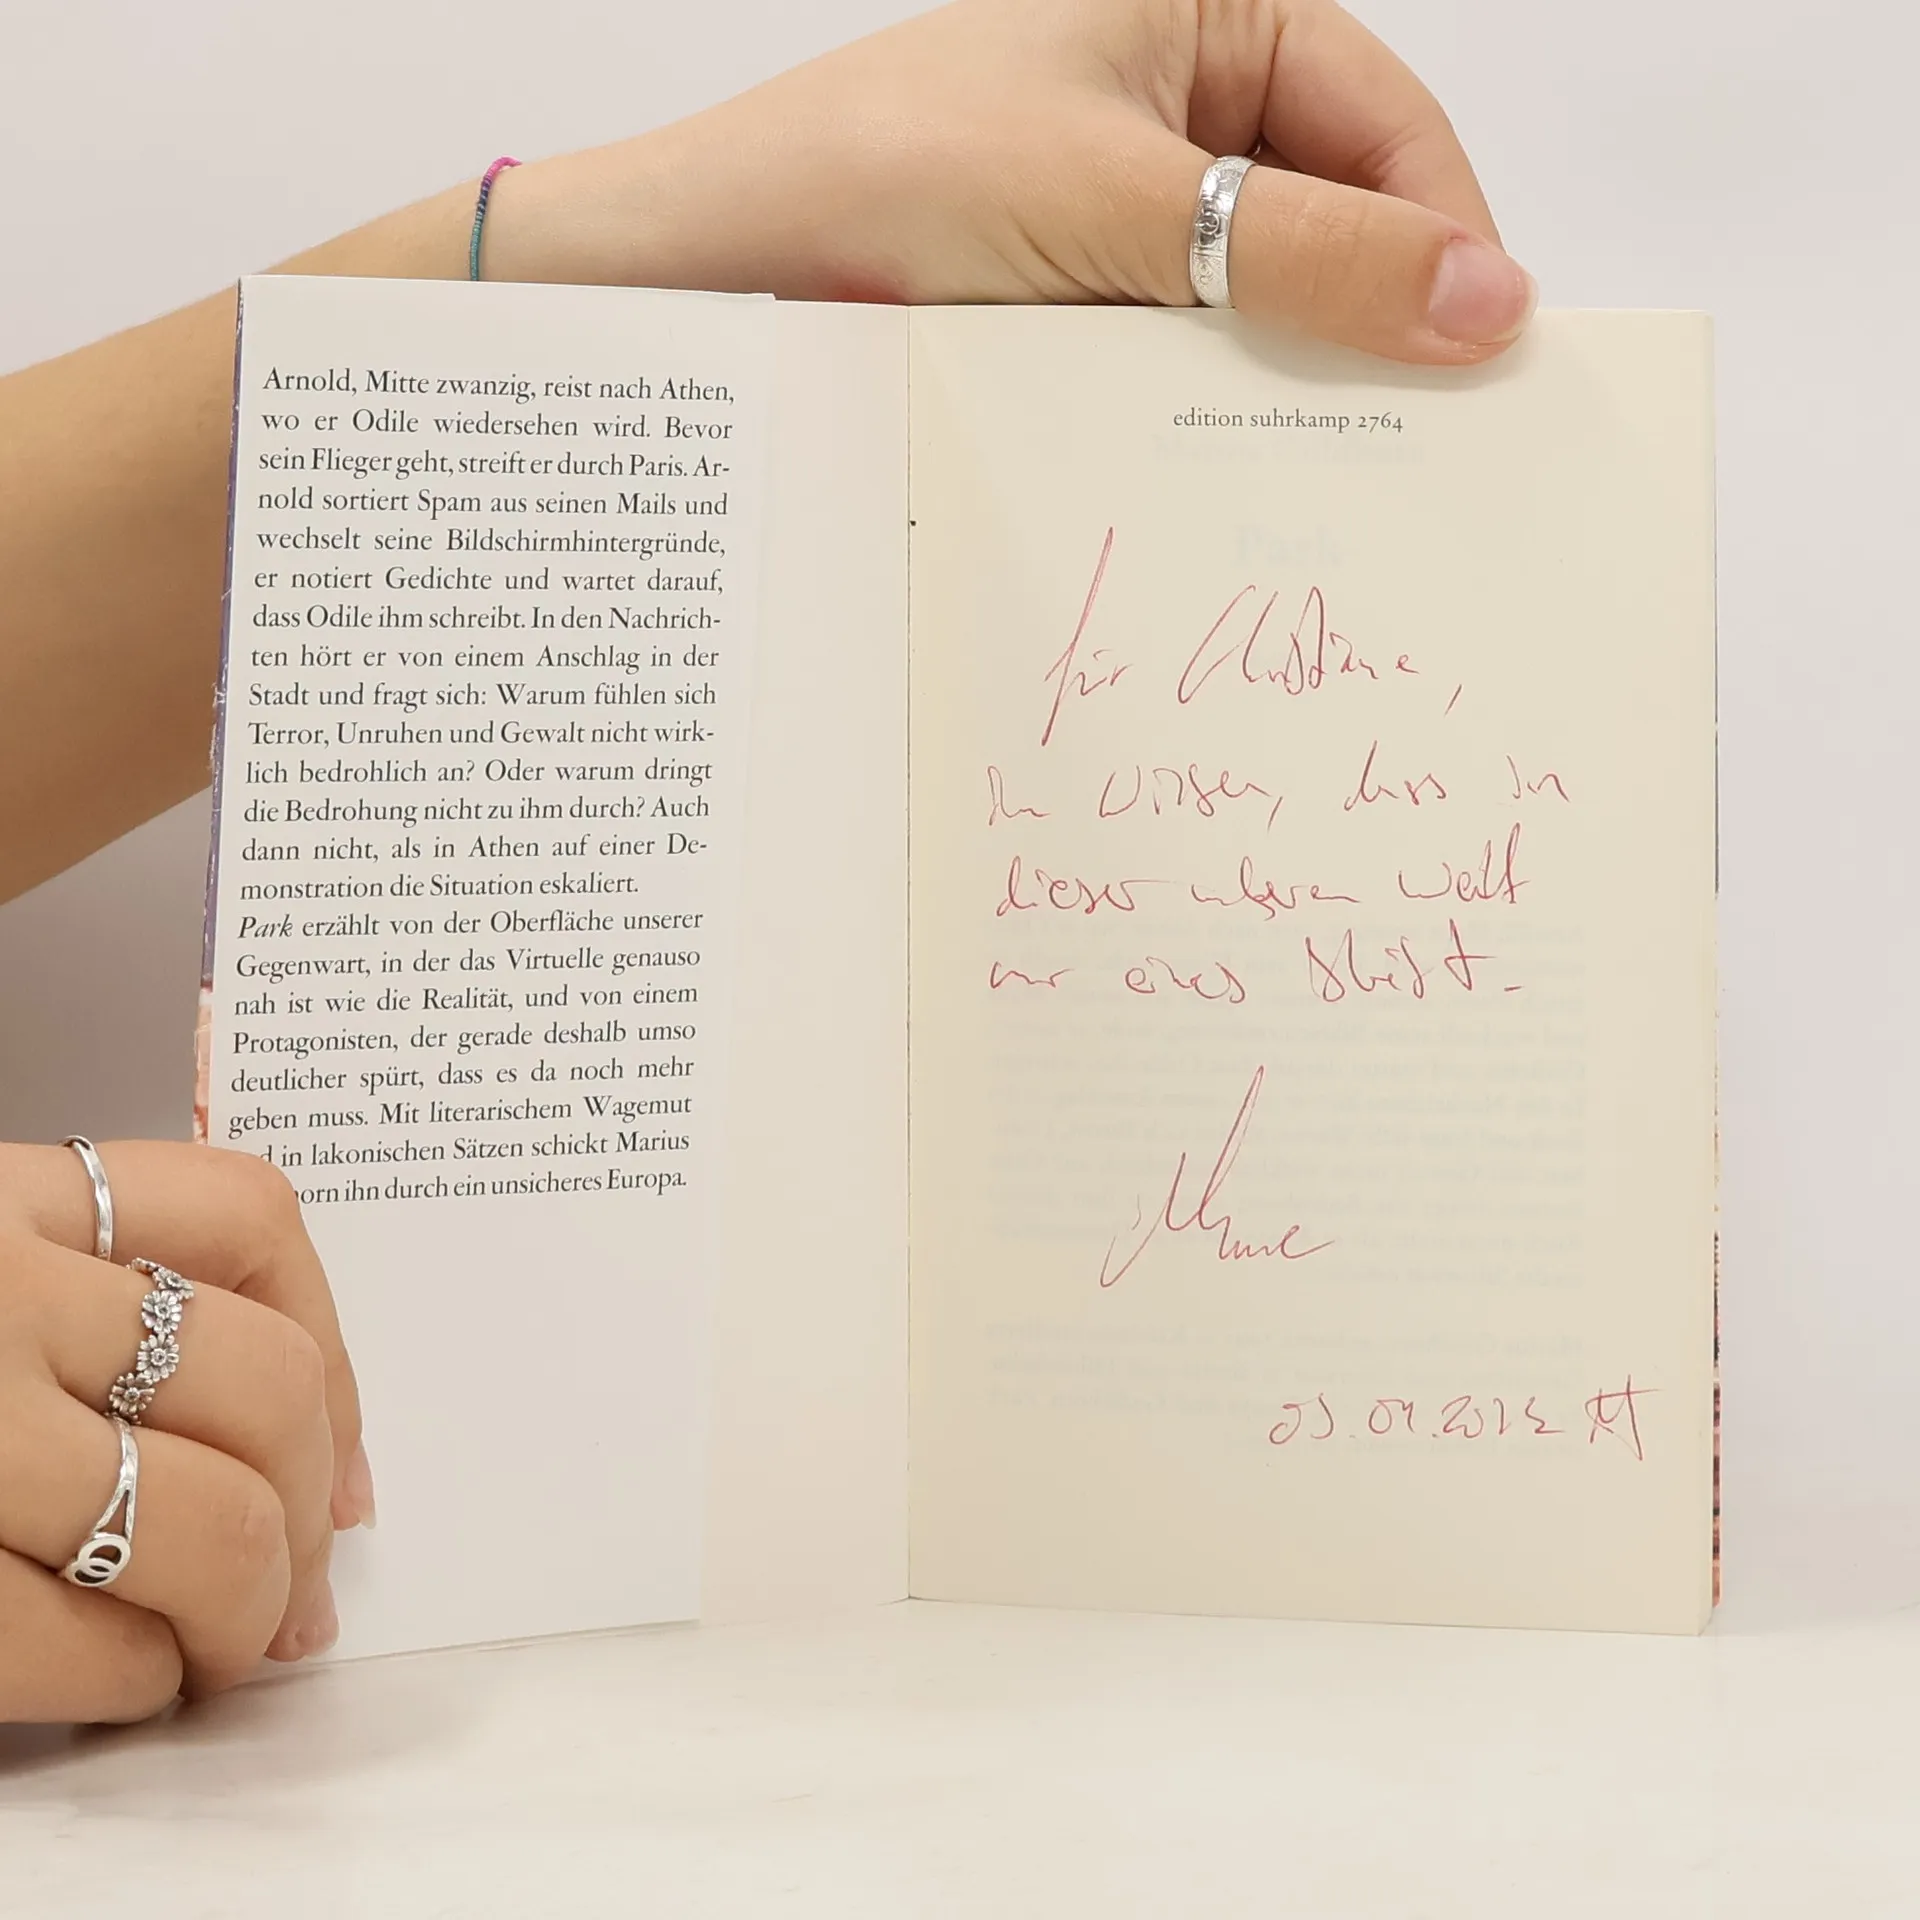 Arnold, Mitte zwanzig, reist nach Athen,
wo er Odile wiedersehen wird. Bevor
sein Flieger geht, streift er durch Paris. Ar-
nold sortiert Spam aus seinen Mails und
wechselt seine Bildschirmhintergründe,
er notiert Gedichte und wartet darauf,
dass Odile ihm schreibt. In den Nachrich-
ten hört er von einem Anschlag in der
Stadt und fragt sich: Warum fühlen sich
Terror, Unruhen und Gewalt nicht wirk-
lich bedrohlich an? Oder warum dringt
die Bedrohung nicht zu ihm durch? Auch
dann nicht, als in Athen auf einer De-
monstration die Situation eskaliert.
Park erzählt von der Oberfläche unserer
Gegenwart, in der das Virtuelle genauso
nah ist wie die Realität, und von einem
Protagonisten, der gerade deshalb umso
deutlicher spürt, dass es da noch mehr
geben muss. Mit literarischem Wagemut
in lakonischen Sätzen schickt Marius
ihn durch ein unsicheres Europa.
edition suhrkamp 2764
Park
für Christiane,
Wissen, dass in
dieser unseren Welt
nur eines bleibt.